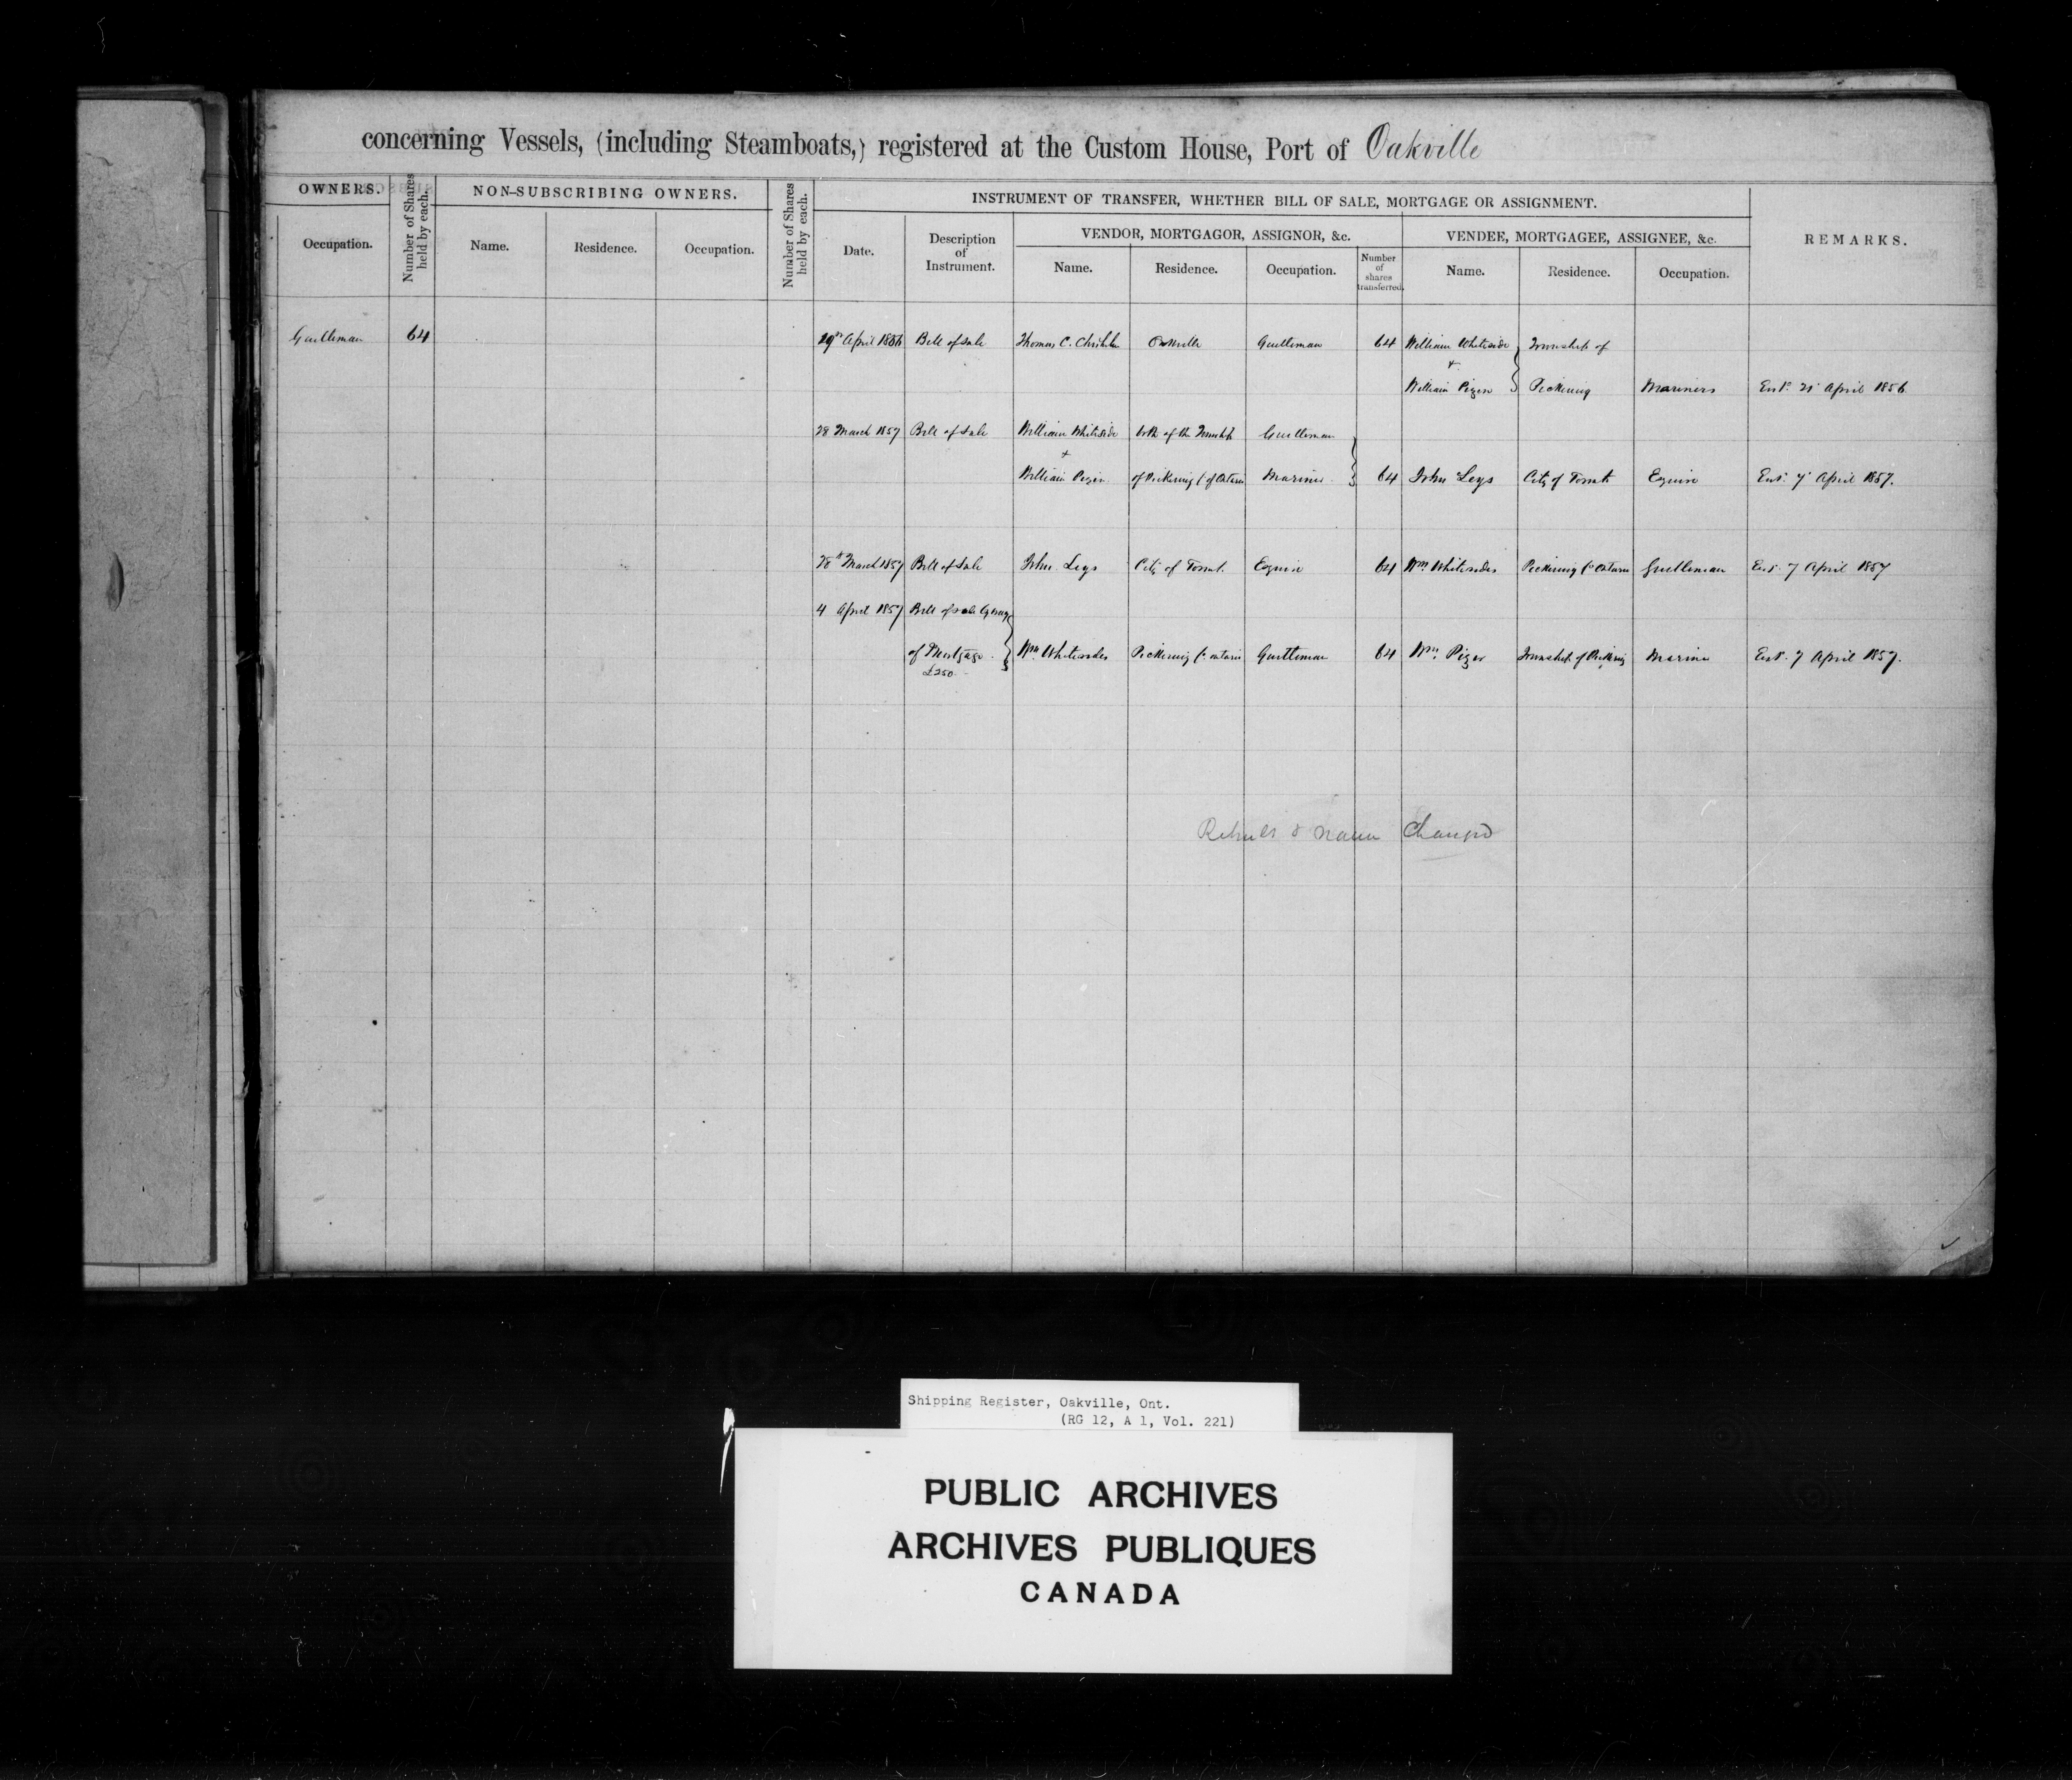 concerning Vessels, (including Steamboats,) registered at the Custom House, Port of Oakville
OWNERS.
Number of Shares held by each.
NON-SUBSCRIBING OWNERS.
Number of Shares held by each.
INSTRUMENT OF TRANSFER, WHETHER BILL OF SALE, MORTGAGE OR ASSIGNMENT.
REMARKS.
Occupation.
Name. Residence. Occupation.
Date. Description of Instrument.
VENDOR, MORTGAGOR, ASSIGNOR, &c.
Name. Residence. Occupation.
Number of shares transferred.
VENDEE, MORTGAGEE, ASSIGNEE, &c.
Name. Residence. Occupation.
Gentleman 64 April 1856 Bill of Sale Thomas C. Oakville Gentleman 64 William Whiteside Township of
&
William Pizer Pickering Mariners Entd. 21 April 1856
28 March 1857 Bill of Sale William Whiteside both of the Township Gentleman
+
William Pizer of Pickering Co of Ontario Mariner 64 John Leys City of Toronto Esquire Entd. 7 April 1857.
28th March 1857 Bill of Sale John Leys City of Toronto Esquire 64 Wm Whitesides Pickering Co Ontario Gentleman Entd. 7 April 1857
4 April 1857 Bill of Sale by way
of Mortgage Wm Whitesides Pickering Co Ontario Gentleman 64 Wm. Pizer Township of Pickering Mariner Entd. 7 April 1857.
£250
& name Changed
Shipping Register, Oakville, Ont.
(RG 12, A 1, Vol. 221)
PUBLIC ARCHIVES
ARCHIVES PUBLIQUES
CANADA